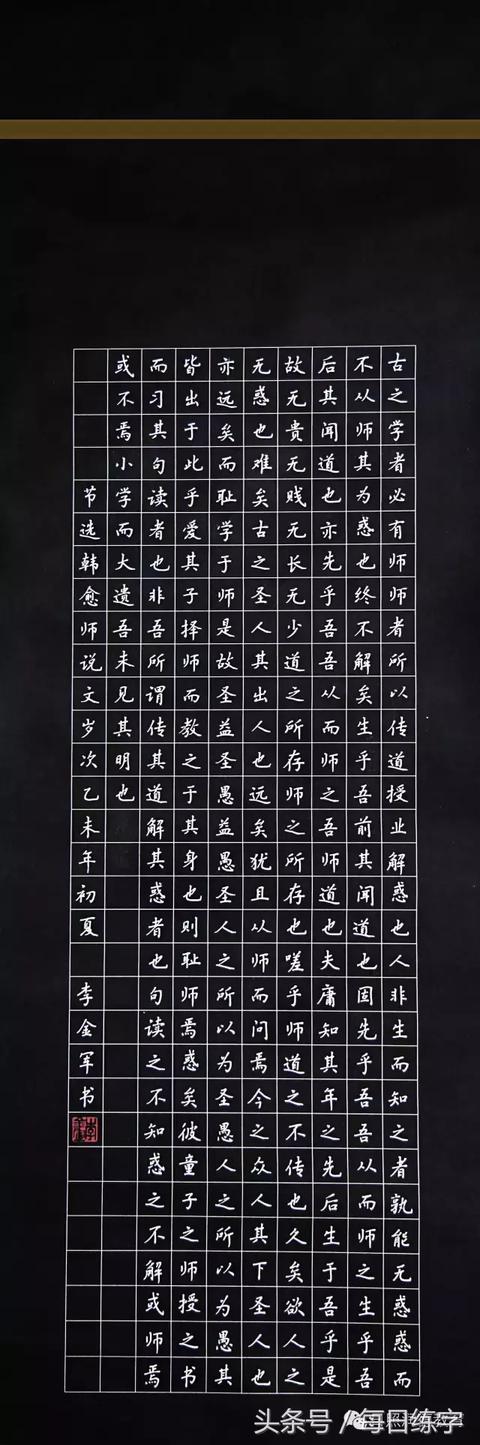 古之学者必有师师者所以传道授业解惑也人非生而知之者孰能无惑惑而
不从师其为惑也终不解矣生乎吾前其闻道也固先乎吾吾从而师之生乎吾
后其闻道也亦先乎吾吾从而师之吾师道也夫庸知其年之先后生于吾乎是
故无贵无贱无长无少道之所存师之所存也嗟乎师道之不传也久矣欲人之
无惑也难矣古之圣人其出人也远矣犹且从师而问焉今之众人其下圣人也
亦远矣而耻学于师是故圣益圣愚益愚圣人之所以为圣愚人之所以为愚其
皆出于此乎爱其子择师而教之于其身也则耻师焉惑矣彼童子之师授之书
而习其句读者也非吾所谓传其道解其惑者也句读之不知惑之不解或师焉
或不焉小学而大遗吾未见其明也
节选韩愈师说文岁次乙未年初夏 李金军书
头条号 / 每日练字